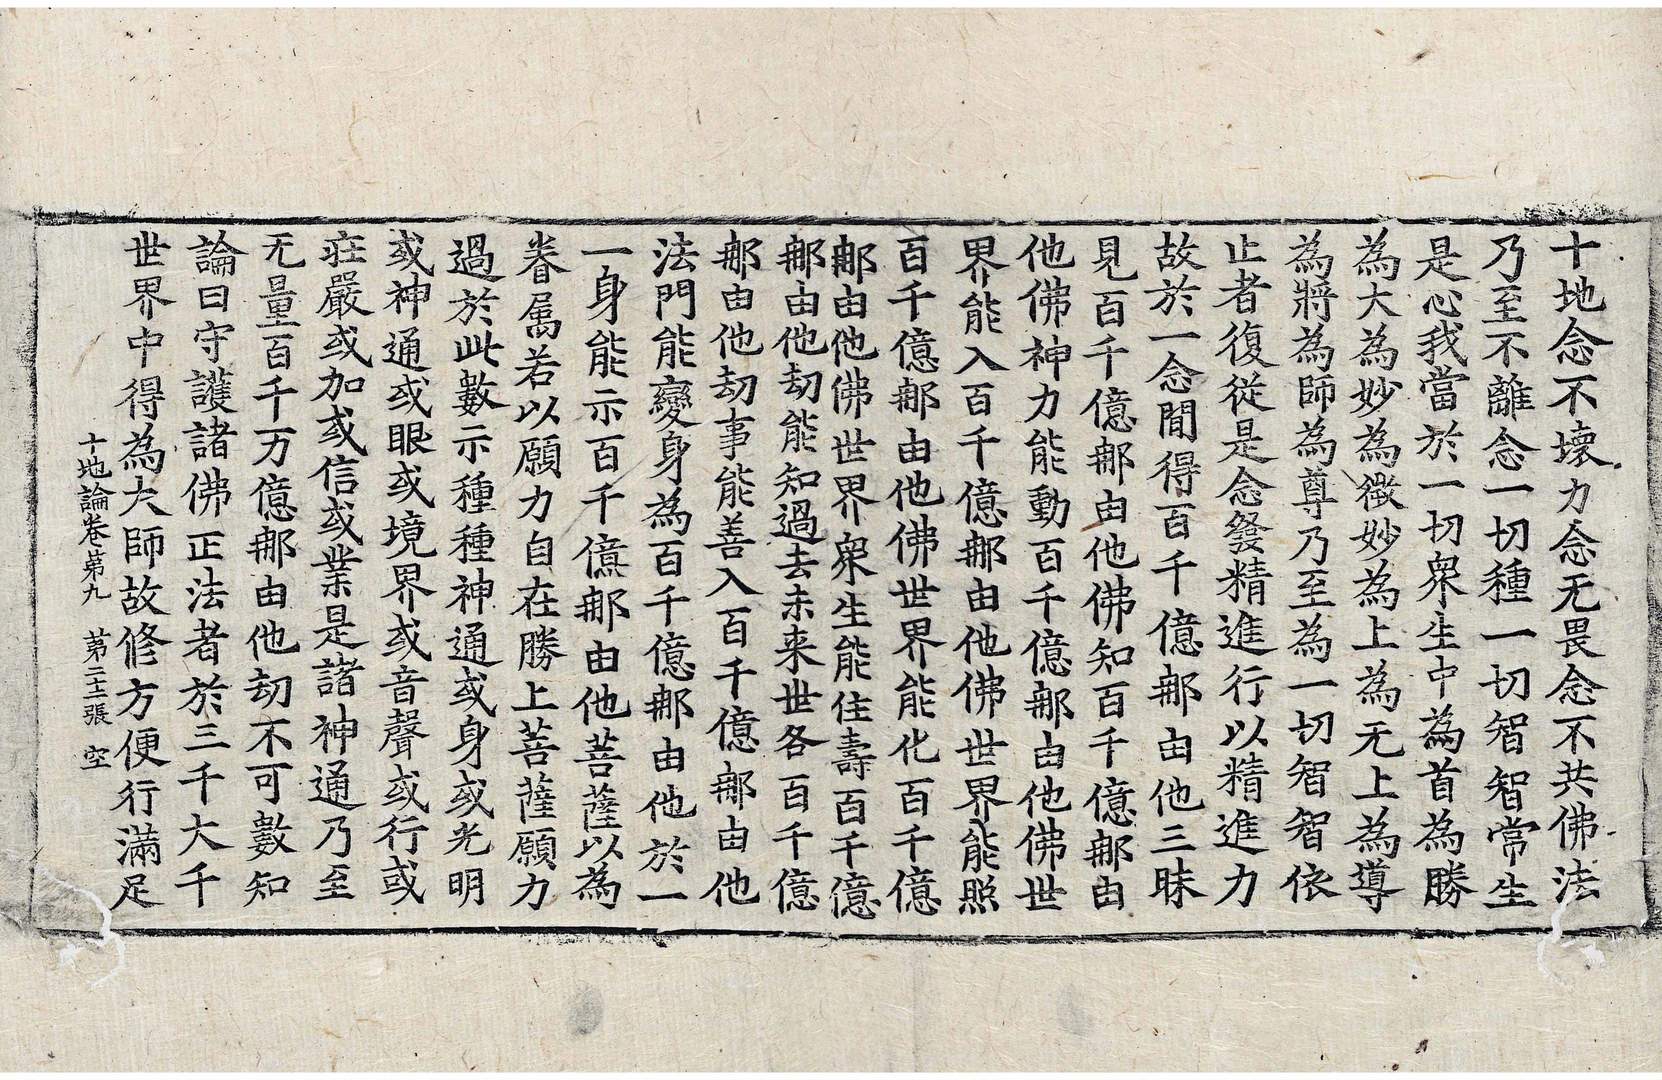 十地念不壞力念无畏念不共佛法
乃至不離念一切種一切智智常生
是心我當於一切衆生中為首為勝
為大為妙為微妙為上為无上為導
為將為師為尊乃至為一切智智依
止者復従是念發精進行以精進力
故於一念閒得百千億𨚗由他三昧
見百千億𨚗由他佛知百千億𨚗由
他佛神力能動百千億𨚗由他佛世
界能入百千億𨚗由他佛世界能照
百千億𨚗由他佛世界能化百千億
𨚗由他佛世界衆生能住壽百千億
𨚗由他劫能知過去未来世各百千億
𨚗由他劫事能善入百千億𨚗由他
法門能變身為百千億𨚗由他於一
一身能示百千億𨚗由他菩薩以為
眷属若以願力自在勝上菩薩願力
過於此數示種種神通或身或光明
或神通或眼或境界或音聲或行或
莊嚴或加或信或業是諸神通乃至
无量百千万億𨚗由他劫不可數知
論曰守護諸佛正法者於三千大千
世界中得為大師故修方便行滿足
十地論卷苐九 苐二十二張 空